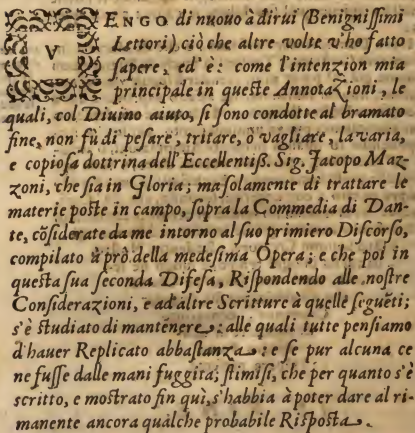 VENGO di nuouo à dirui (Benigniſſimi
Lettori) ciò che altre volte v'ho fatto
ſapere, ed' è: come l'intenzion mia
principale in queſte Annotazioni, le
quali, col Diuino aiuto, ſi ſono condotte al bramato
fine, non fù di peſare, tritare, ò vagliare, la varia,
e copioſa dottrina dell'Eccellentiß. Sig. Jacopo Maz-
zoni, che ſia in Gloria; ma ſolamente di trattare le
materie poſte in campo, ſopra la Commedia di Dan-
te, cõſiderate da me intorno al ſuo primiero Diſcorſo,
compilato à prò della medeſima Opera; e che poi in
queſta ſua ſeconda Difeſa, Riſpondendo alle noſtre
Conſiderazioni, e ad altre Scritture à quelle ſeguẽti;
s'è ſtudiato di mantenere: alle quali tutte penſiamo
d'hauer Replicato abbaſtanza: e ſe pur alcuna ce
ne fuſſe dalle mani fuggita; ſtimiſi, che per quanto s'è
ſcritto, e moſtrato fin quì, s'habbia à poter dare al ri-
manente ancora qualche probabile Riſpoſta.